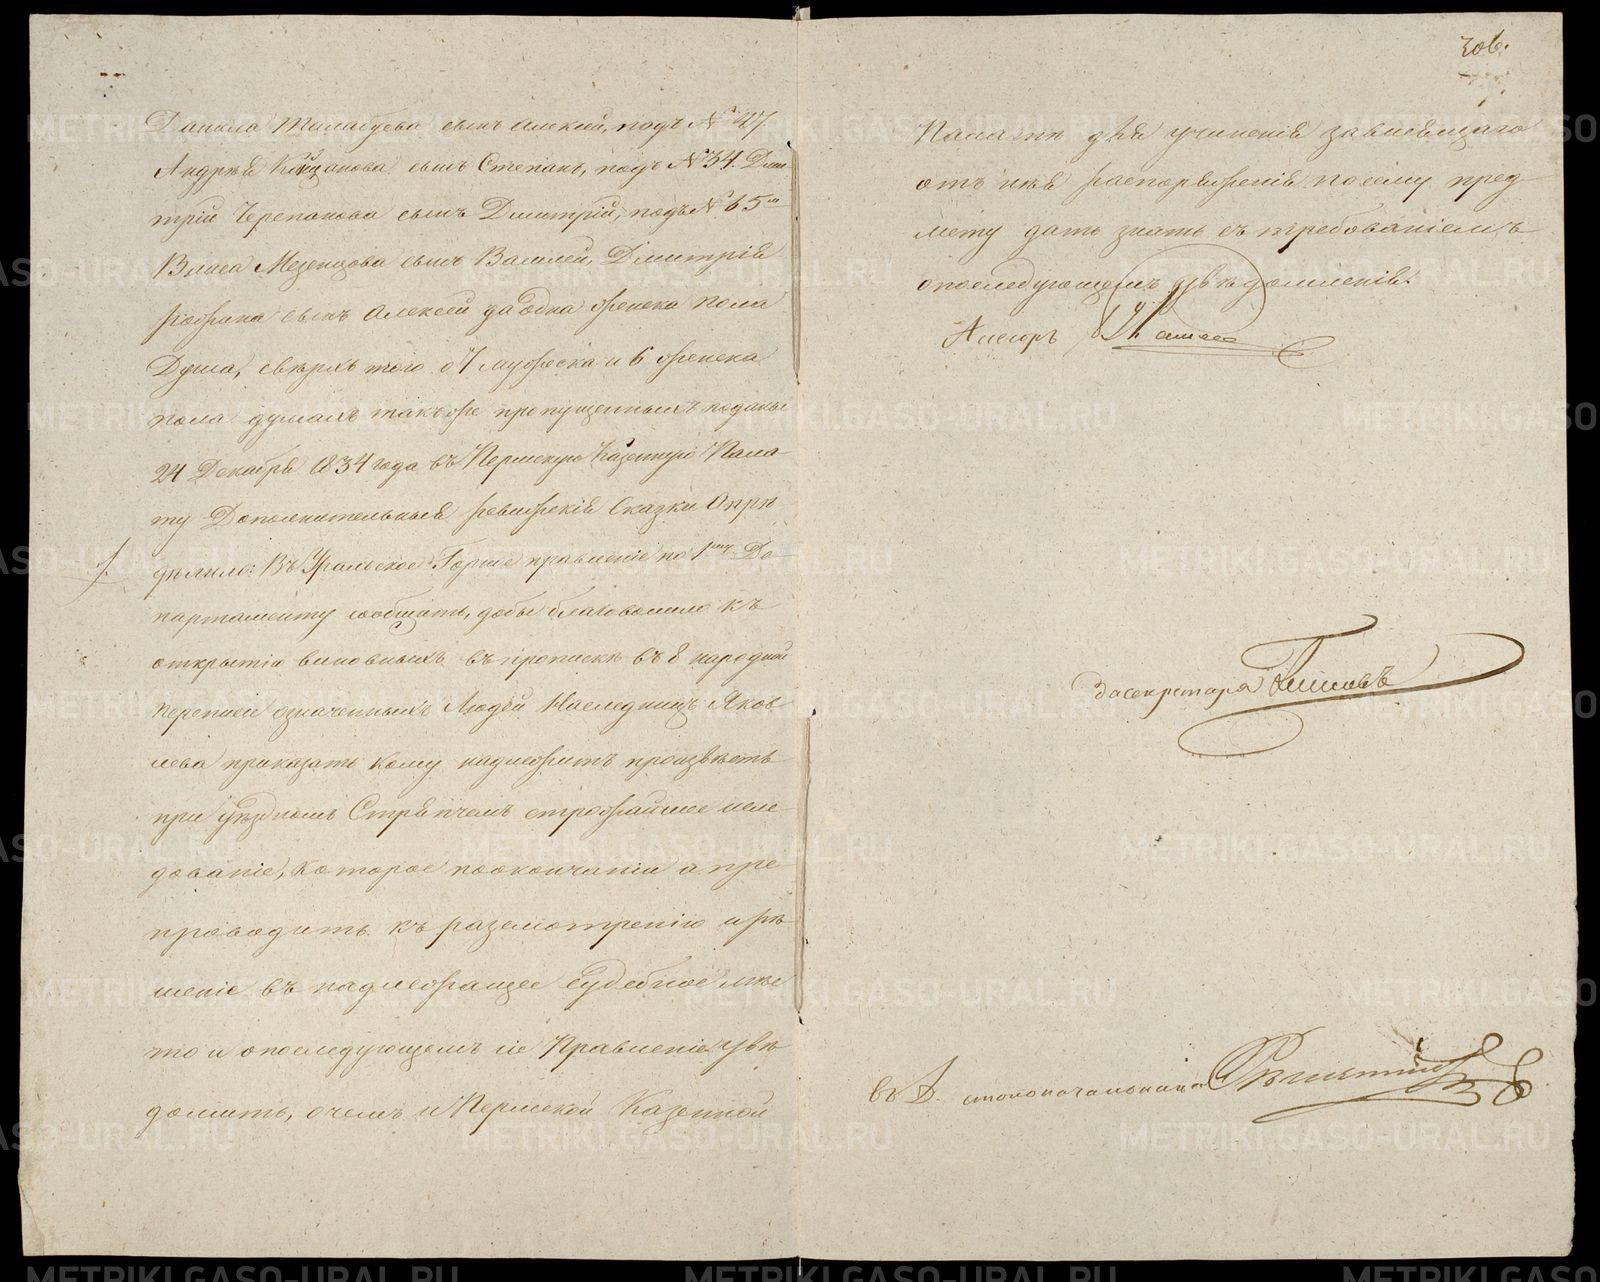 306.
Данила сынъ Алексей, подъ № 47
Андрѣя сынъ Степанъ, подъ № 34. Дми-
трій Черепанова сынъ Дмитрій, подъ № 65 го
Власа Мезенцова сынъ Василей, Дмитрія
сынъ Алексей да одна женска пола
Душа, сверхъ того о 7 мужеска и 6 женска
пола душахъ также пропущенныхъ поданы
24 Декабря 1834 года въ Пермскую Казенную Пала-
ту Дополнительныя ревижскія Сказки Опрѣ
дѣлило: Въ Уральское Горное правленіе по 1му Де-
партаменту сообщить, дабы благоволило къ
открытію виновныхъ въ прописке въ 8 народной
переписи означенныхъ Людей Наследницъ Яков
лева приказать кому надлежитъ произвѣсть
при уѣздномъ Стряпчемъ строжайшее изсле
дованіе, которое поокончаніи а пре
проводить къ разсмотренію и рѣ
шенію въ надлежащее судебное мѣс
то и опоследующемъ сіе Правленіе увѣ
домить, очемъ и Пермской Казенной
Палатѣ для учиненія зависящаго
отъ нея распоряженія посему пред
мету дать знать съ требованіемъ
опоследующемъ увѣдомленія.
Асесоръ
За секретаря
въ Д. столоначальника